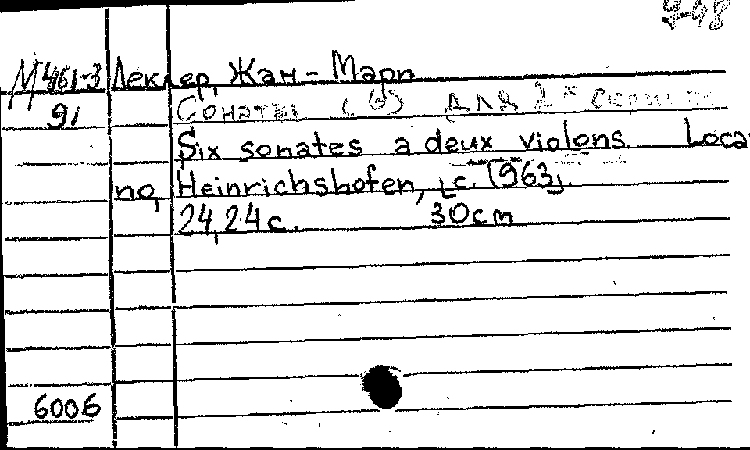 4-08
М461-3 Леклер, Жан-Мари
91 Сонаты (6) для 2х скрипок
Six sonates a deux violons. Loca
no, Heinrichshofen, [c. 1963].
24,24 с. 30cm
6006